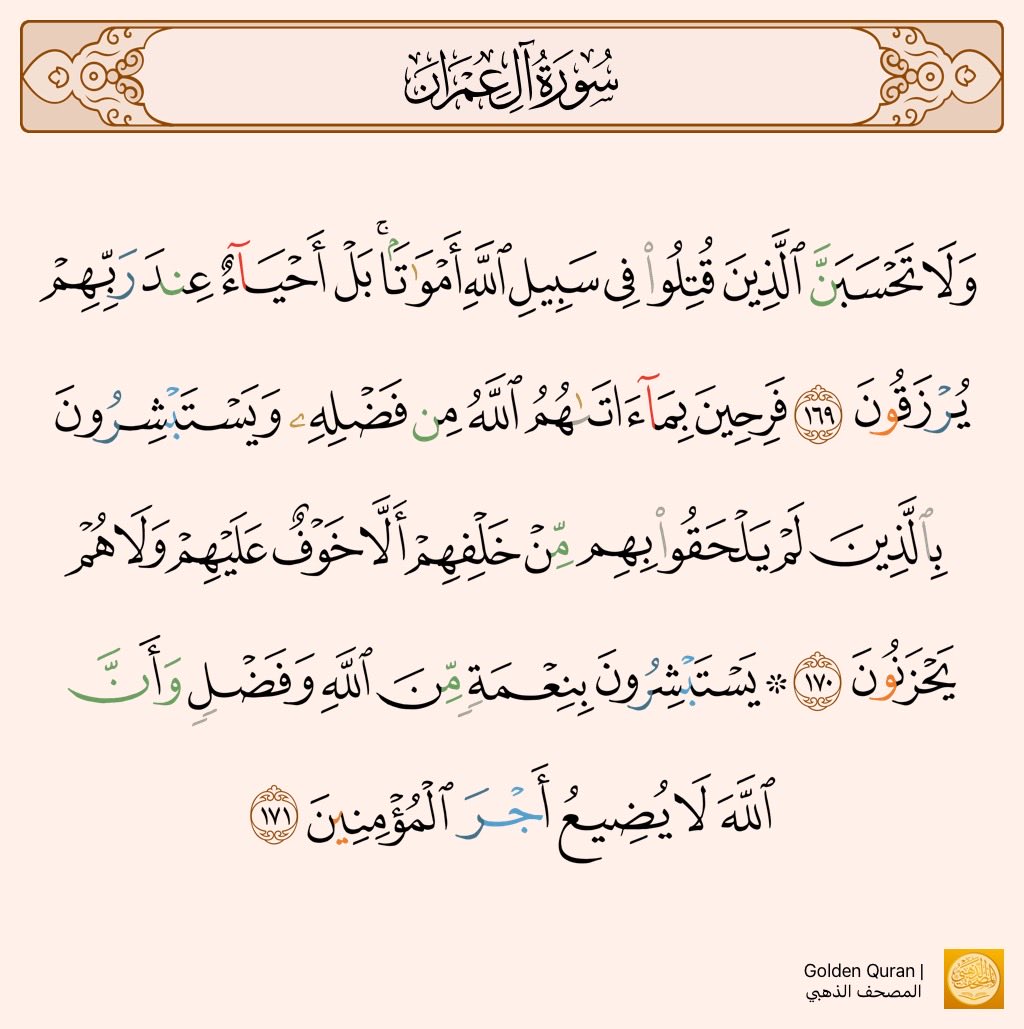 سُورَةُ آلِ عِمْرَانَ
وَلَا تَحْسَبَنَّ ٱلَّذِينَ قُتِلُوا۟ فِى سَبِيلِ ٱللَّهِ أَمْوَٰتًۢا ۚ بَلْ أَحْيَآءٌ عِندَ رَبِّهِمْ
يُرْزَقُونَ ١٦٩ فَرِحِينَ بِمَآ ءَاتَىٰهُمُ ٱللَّهُ مِن فَضْلِهِۦ وَيَسْتَبْشِرُونَ
بِٱلَّذِينَ لَمْ يَلْحَقُوا۟ بِهِم مِّنْ خَلْفِهِمْ أَلَّا خَوْفٌ عَلَيْهِمْ وَلَا هُمْ
يَحْزَنُونَ ١٧٠ ۞ يَسْتَبْشِرُونَ بِنِعْمَةٍ مِّنَ ٱللَّهِ وَفَضْلٍ وَأَنَّ
ٱللَّهَ لَا يُضِيعُ أَجْرَ ٱلْمُؤْمِنِينَ ١٧١
Golden Quran |
المصحف الذهبي